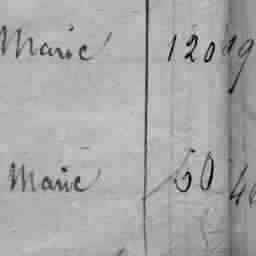 Marie 120 99
Marie 60 46